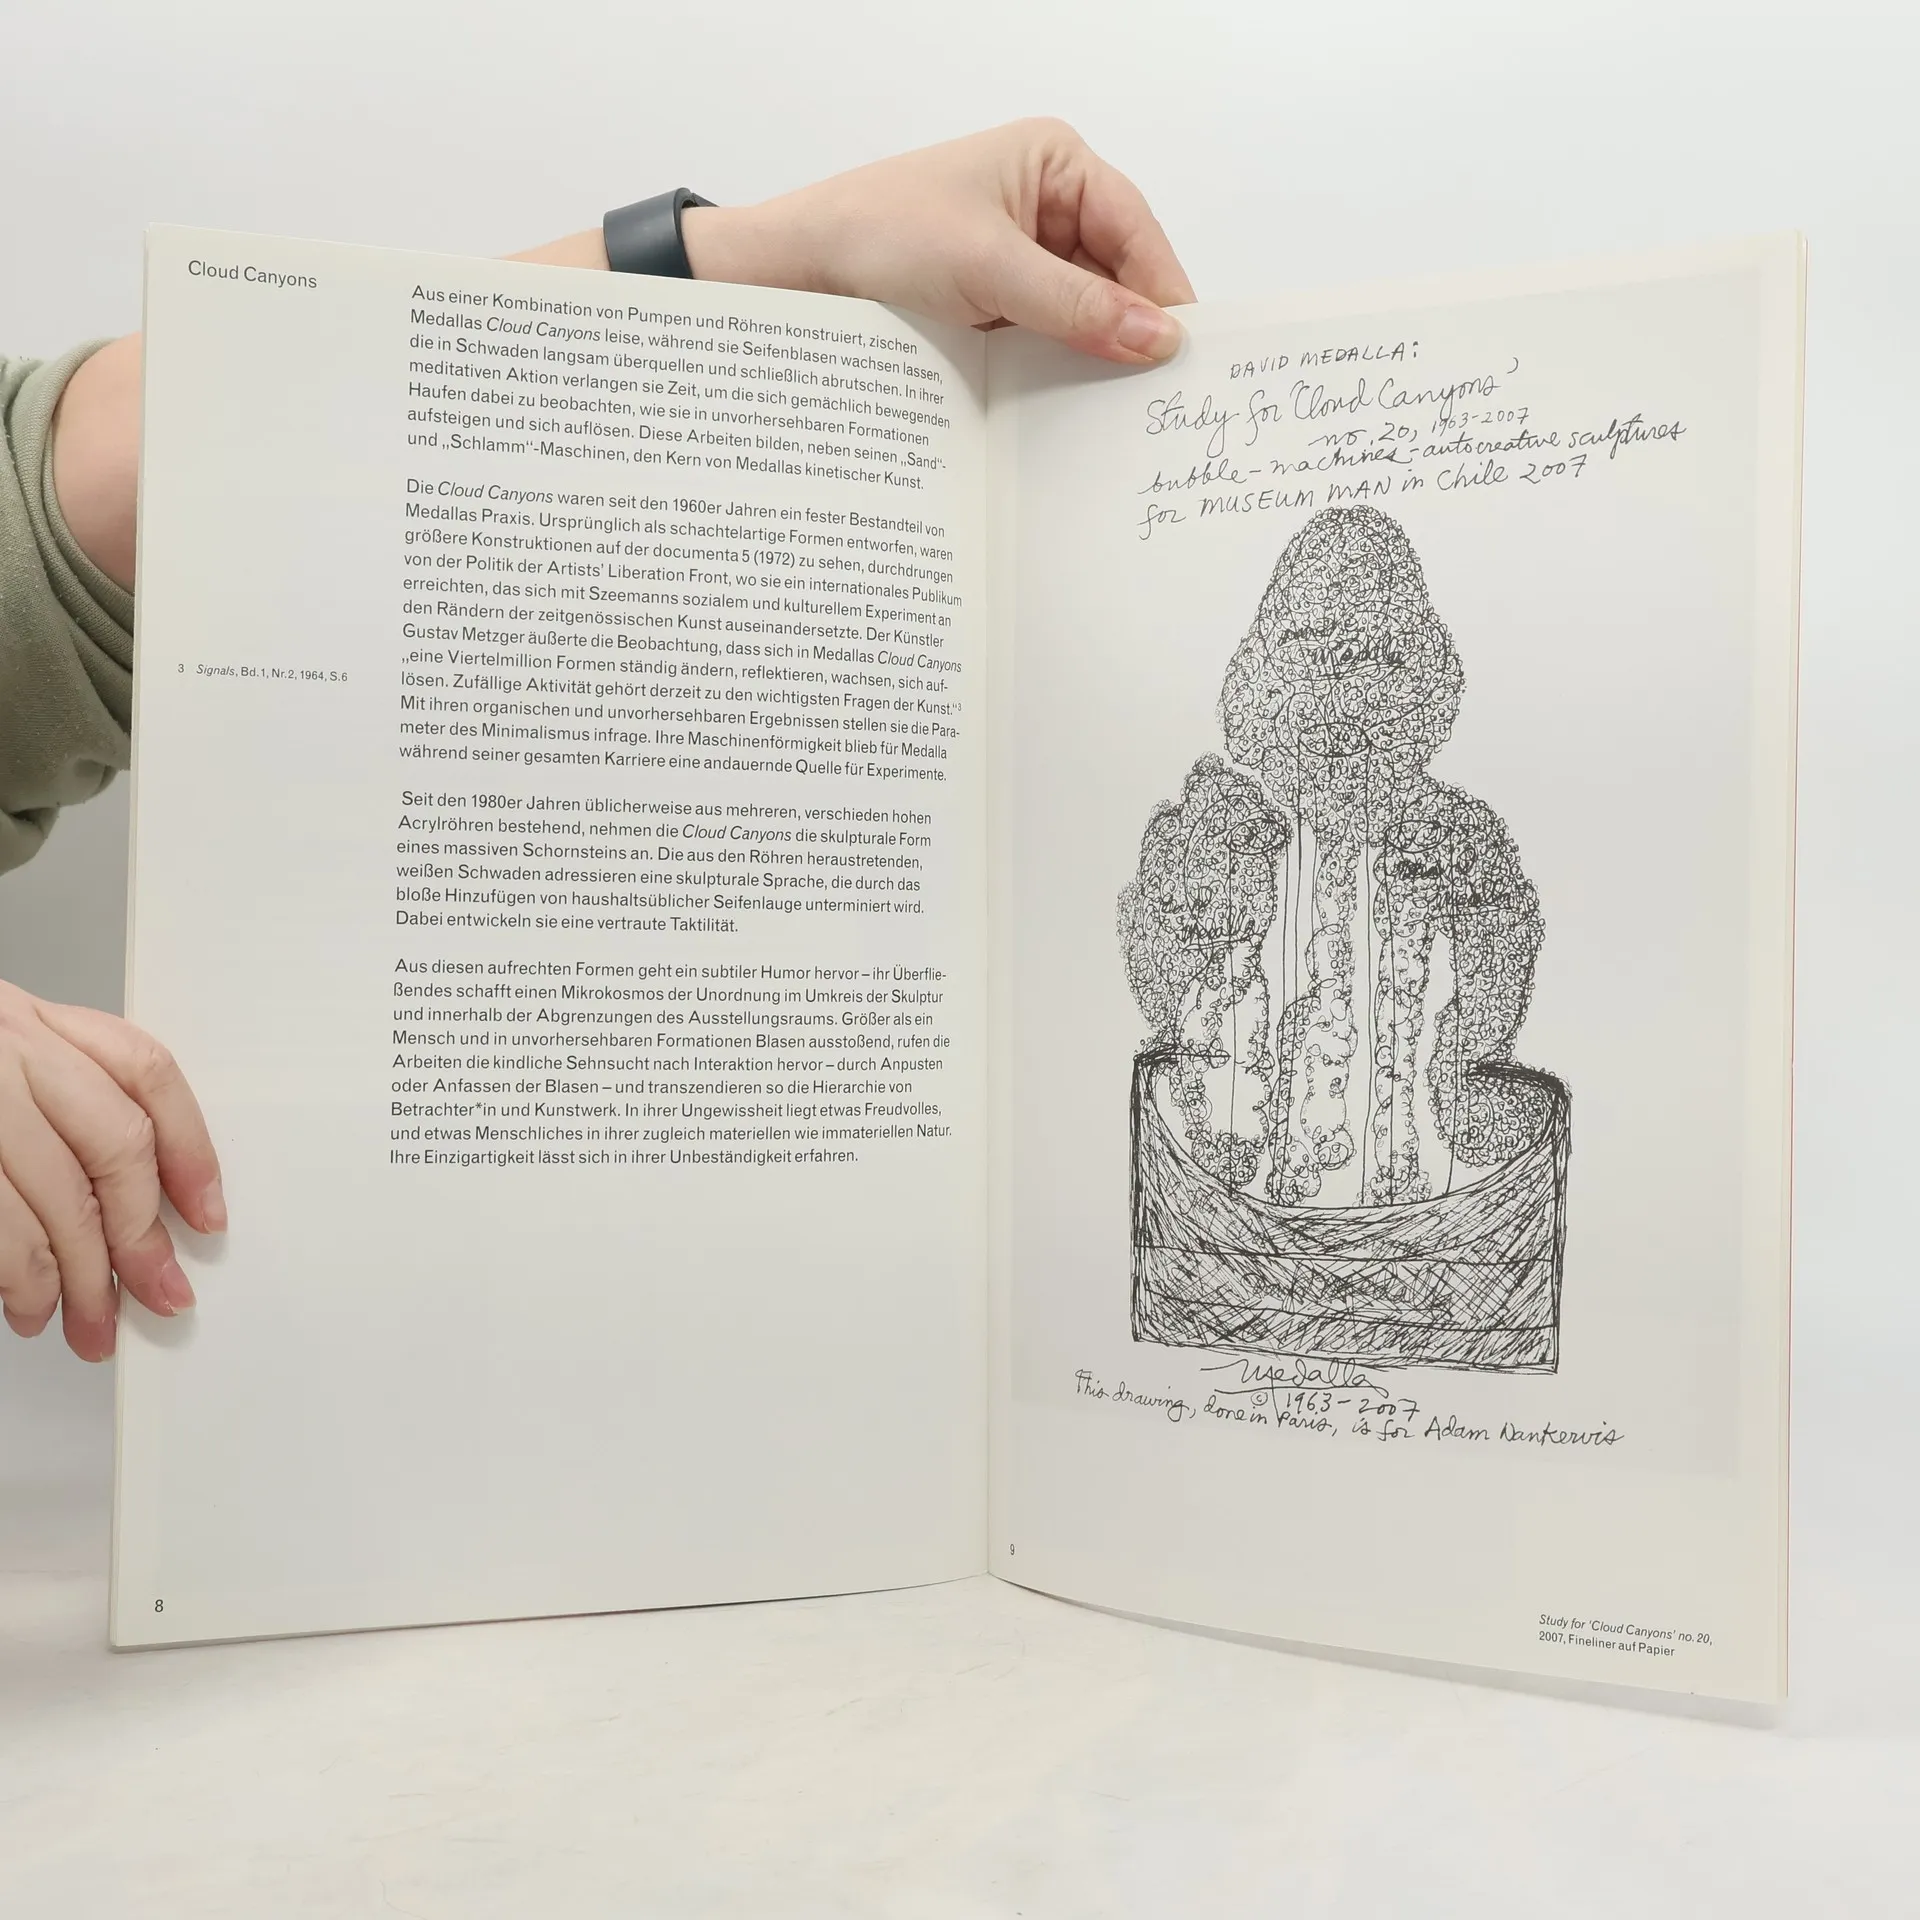 Cloud Canyons
Aus einer Kombination von Pumpen und Röhren konstruiert, zischen
Medallas Cloud Canyons leise, während sie Seifenblasen wachsen lassen,
die in Schwaden langsam überquellen und schließlich abrutschen. In ihrer
meditativen Aktion verlangen sie Zeit, um die sich gemächlich bewegenden
Haufen dabei zu beobachten, wie sie in unvorhersehbaren Formationen
aufsteigen und sich auflösen. Diese Arbeiten bilden, neben seinen „Sand“-
und „Schlamm“-Maschinen, den Kern von Medallas kinetischer Kunst.
Die Cloud Canyons waren seit den 1960er Jahren ein fester Bestandteil von
Medallas Praxis. Ursprünglich als schachtelartige Formen entworfen, waren
größere Konstruktionen auf der documenta 5 (1972) zu sehen, durchdrungen
von der Politik der Artists’ Liberation Front, wo sie ein internationales Publikum
erreichten, das sich mit Szeemanns sozialem und kulturellem Experiment an
den Rändern der zeitgenössischen Kunst auseinandersetzte. Der Künstler
Gustav Metzger äußerte die Beobachtung, dass sich in Medallas Cloud Canyons
„eine Viertelmillion Formen ständig ändern, reflektieren, wachsen, sich auf-
lösen. Zufällige Aktivität gehört derzeit zu den wichtigsten Fragen der Kunst.“3
Mit ihren organischen und unvorhersehbaren Ergebnissen stellen sie die Para-
meter des Minimalismus infrage. Ihre Maschinenförmigkeit blieb für Medalla
während seiner gesamten Karriere eine andauernde Quelle für Experimente.
3 Signals, Bd. 1, Nr. 2, 1964, S. 6
Seit den 1980er Jahren üblicherweise aus mehreren, verschieden hohen
Acrylröhren bestehend, nehmen die Cloud Canyons die skulpturale Form
eines massiven Schornsteins an. Die aus den Röhren heraustretenden,
weißen Schwaden adressieren eine skulpturale Sprache, die durch das
bloße Hinzufügen von haushaltsüblicher Seifenlauge unterminiert wird.
Dabei entwickeln sie eine vertraute Taktilität.
Aus diesen aufrechten Formen geht ein subtiler Humor hervor – ihr Überflie-
ßendes schafft einen Mikrokosmos der Unordnung im Umkreis der Skulptur
und innerhalb der Abgrenzungen des Ausstellungsraums. Größer als ein
Mensch und in unvorhersehbaren Formationen Blasen ausstoßend, rufen die
Arbeiten die kindliche Sehnsucht nach Interaktion hervor – durch Anpusten
oder Anfassen der Blasen – und transzendieren so die Hierarchie von
Betrachter*in und Kunstwerk. In ihrer Ungewissheit liegt etwas Freudvolles,
und etwas Menschliches in ihrer zugleich materiellen wie immateriellen Natur.
Ihre Einzigartigkeit lässt sich in ihrer Unbeständigkeit erfahren.
8
DAVID MEDALLA:
Study for 'Cloud Canyons'
no. 20, 1963-2007
bubble-machines-autocreative sculptures
for MUSEUM MAN in Chile 2007
Medalla
Medalla
Medalla
Medalla
© 1963-2007
This drawing, done in Paris, is for Adam Nankervis
9
Study for ‘Cloud Canyons’ no. 20,
2007, Fineliner auf Papier